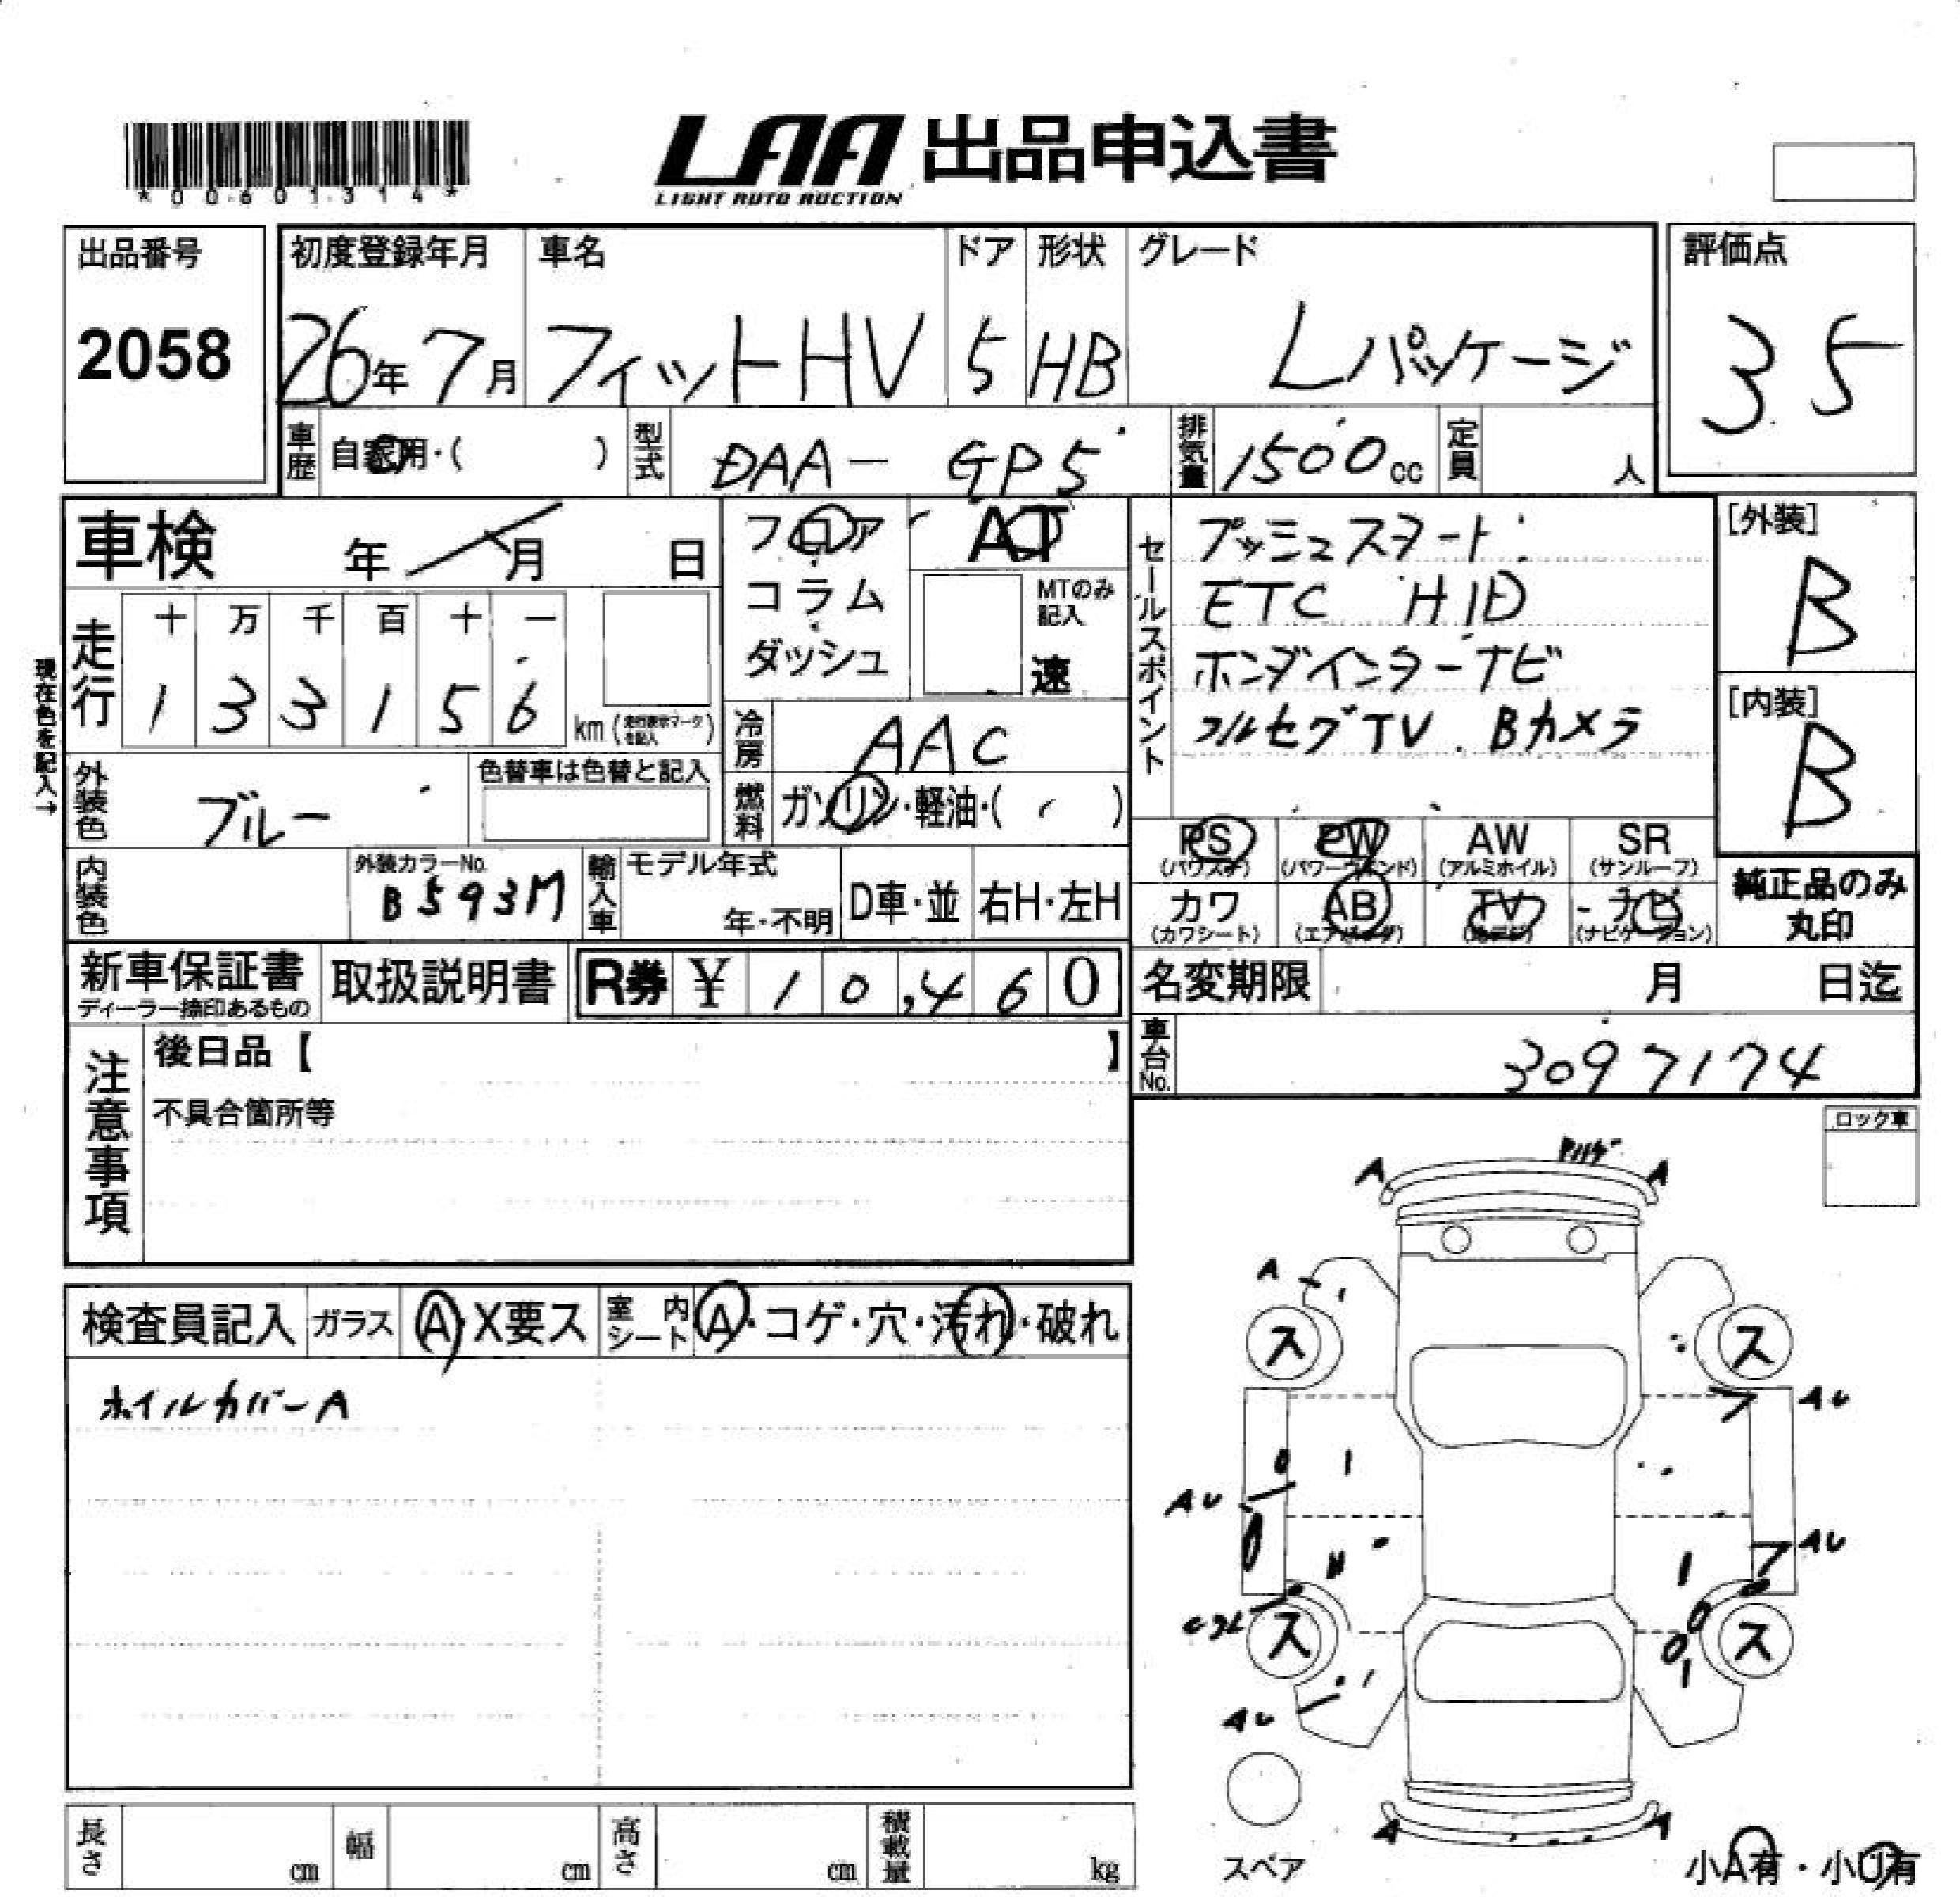 *00601314*
LAA 出品申込書
LIGHT AUTO AUCTION
出品番号
2058
初度登録年月
26年 7月
車名
フィットHV
ドア
5
形状
HB
グレード
Lパッケージ
評価点
3.5
車歴
自家用・( )
型式
DAA- GP5
排気量
1500cc
定員
人
車検 年 月 日
フロア
コラム
ダッシュ
AT
MTのみ記入
速
セールスポイント
プッシュスタート
ETC HID
ホンダインターナビ
フルセグTV. Bカメラ
[外装]
B
[内装]
B
現在色を記入→
走行
十 万 千 百 十 一
1 3 3 1 5 6
km (走行表示マークを記入)
冷房
AAC
外装色
ブルー
色替車は色替と記入
燃料
ガソリン・軽油・( )
PS (パワステ)
PW (パワーウインド)
AW (アルミホイル)
SR (サンルーフ)
内装色
外装カラーNo.
B593M
輸入車
モデル年式
年・不明
D車・並
右H・左H
カワ (カワシート)
AB (エアバッグ)
TV
ナビ (ナビゲーション)
純正品のみ
丸印
新車保証書
ディーラー捺印あるもの
取扱説明書
R券 ¥ 10,460
名変期限 月 日迄
注意事項
後日品【 】
不具合箇所等
車台No.
3097174
ロック車
A
A
A
ス
ス
AU
AU
AU
ス
ス
AU
A
A
検査員記入
ガラス
A・X要ス
室内シート
A・コゲ・穴・汚れ・破れ
ホイルカバーA
長さ cm
幅 cm
高さ cm
積載量 kg
スペア
小A有・小U有